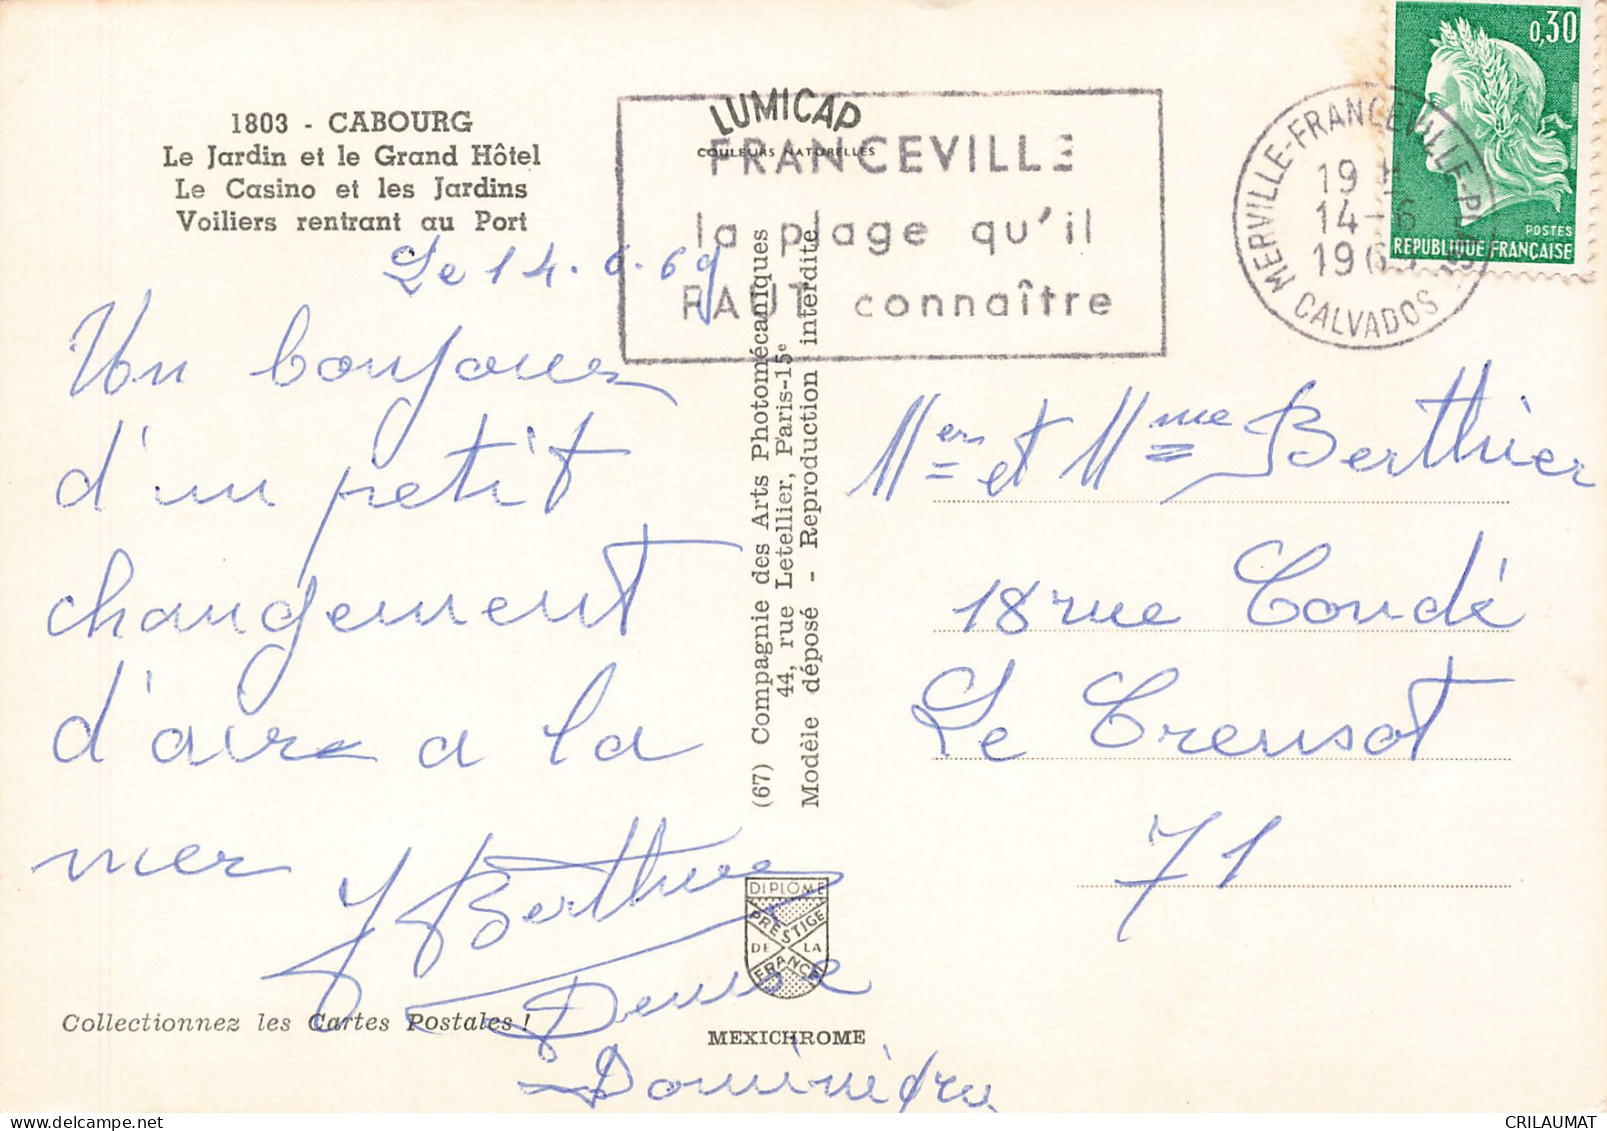 1803 - CABOURG
Le Jardin et le Grand Hôtel
Le Casino et les Jardins
Voiliers rentrant au Port
LUMICAP
COULEURS NATURELLES
FRANCEVILLE
la plage qu'il
FAUT connaître
MERVILLE-FRANCEVILLE-PLAGE
19 H
14-6
1969
CALVADOS
0,30
POSTES
REPUBLIQUE FRANÇAISE
Le 14.6.69
Un bonjour
d'un petit
changement
d'air a la
mer
J Berthier
Denise
(67) Compagnie des Arts Photomécaniques
44, rue Letellier, Paris-15e
Modèle déposé - Reproduction interdite
Mer et Mme Berthier
18 rue Condé
Le Creusot
71
DIPLOME
PRESTIGE
DE LA
FRANCE
Collectionnez les Cartes Postales !
MEXICHROME
CRILAUMAT